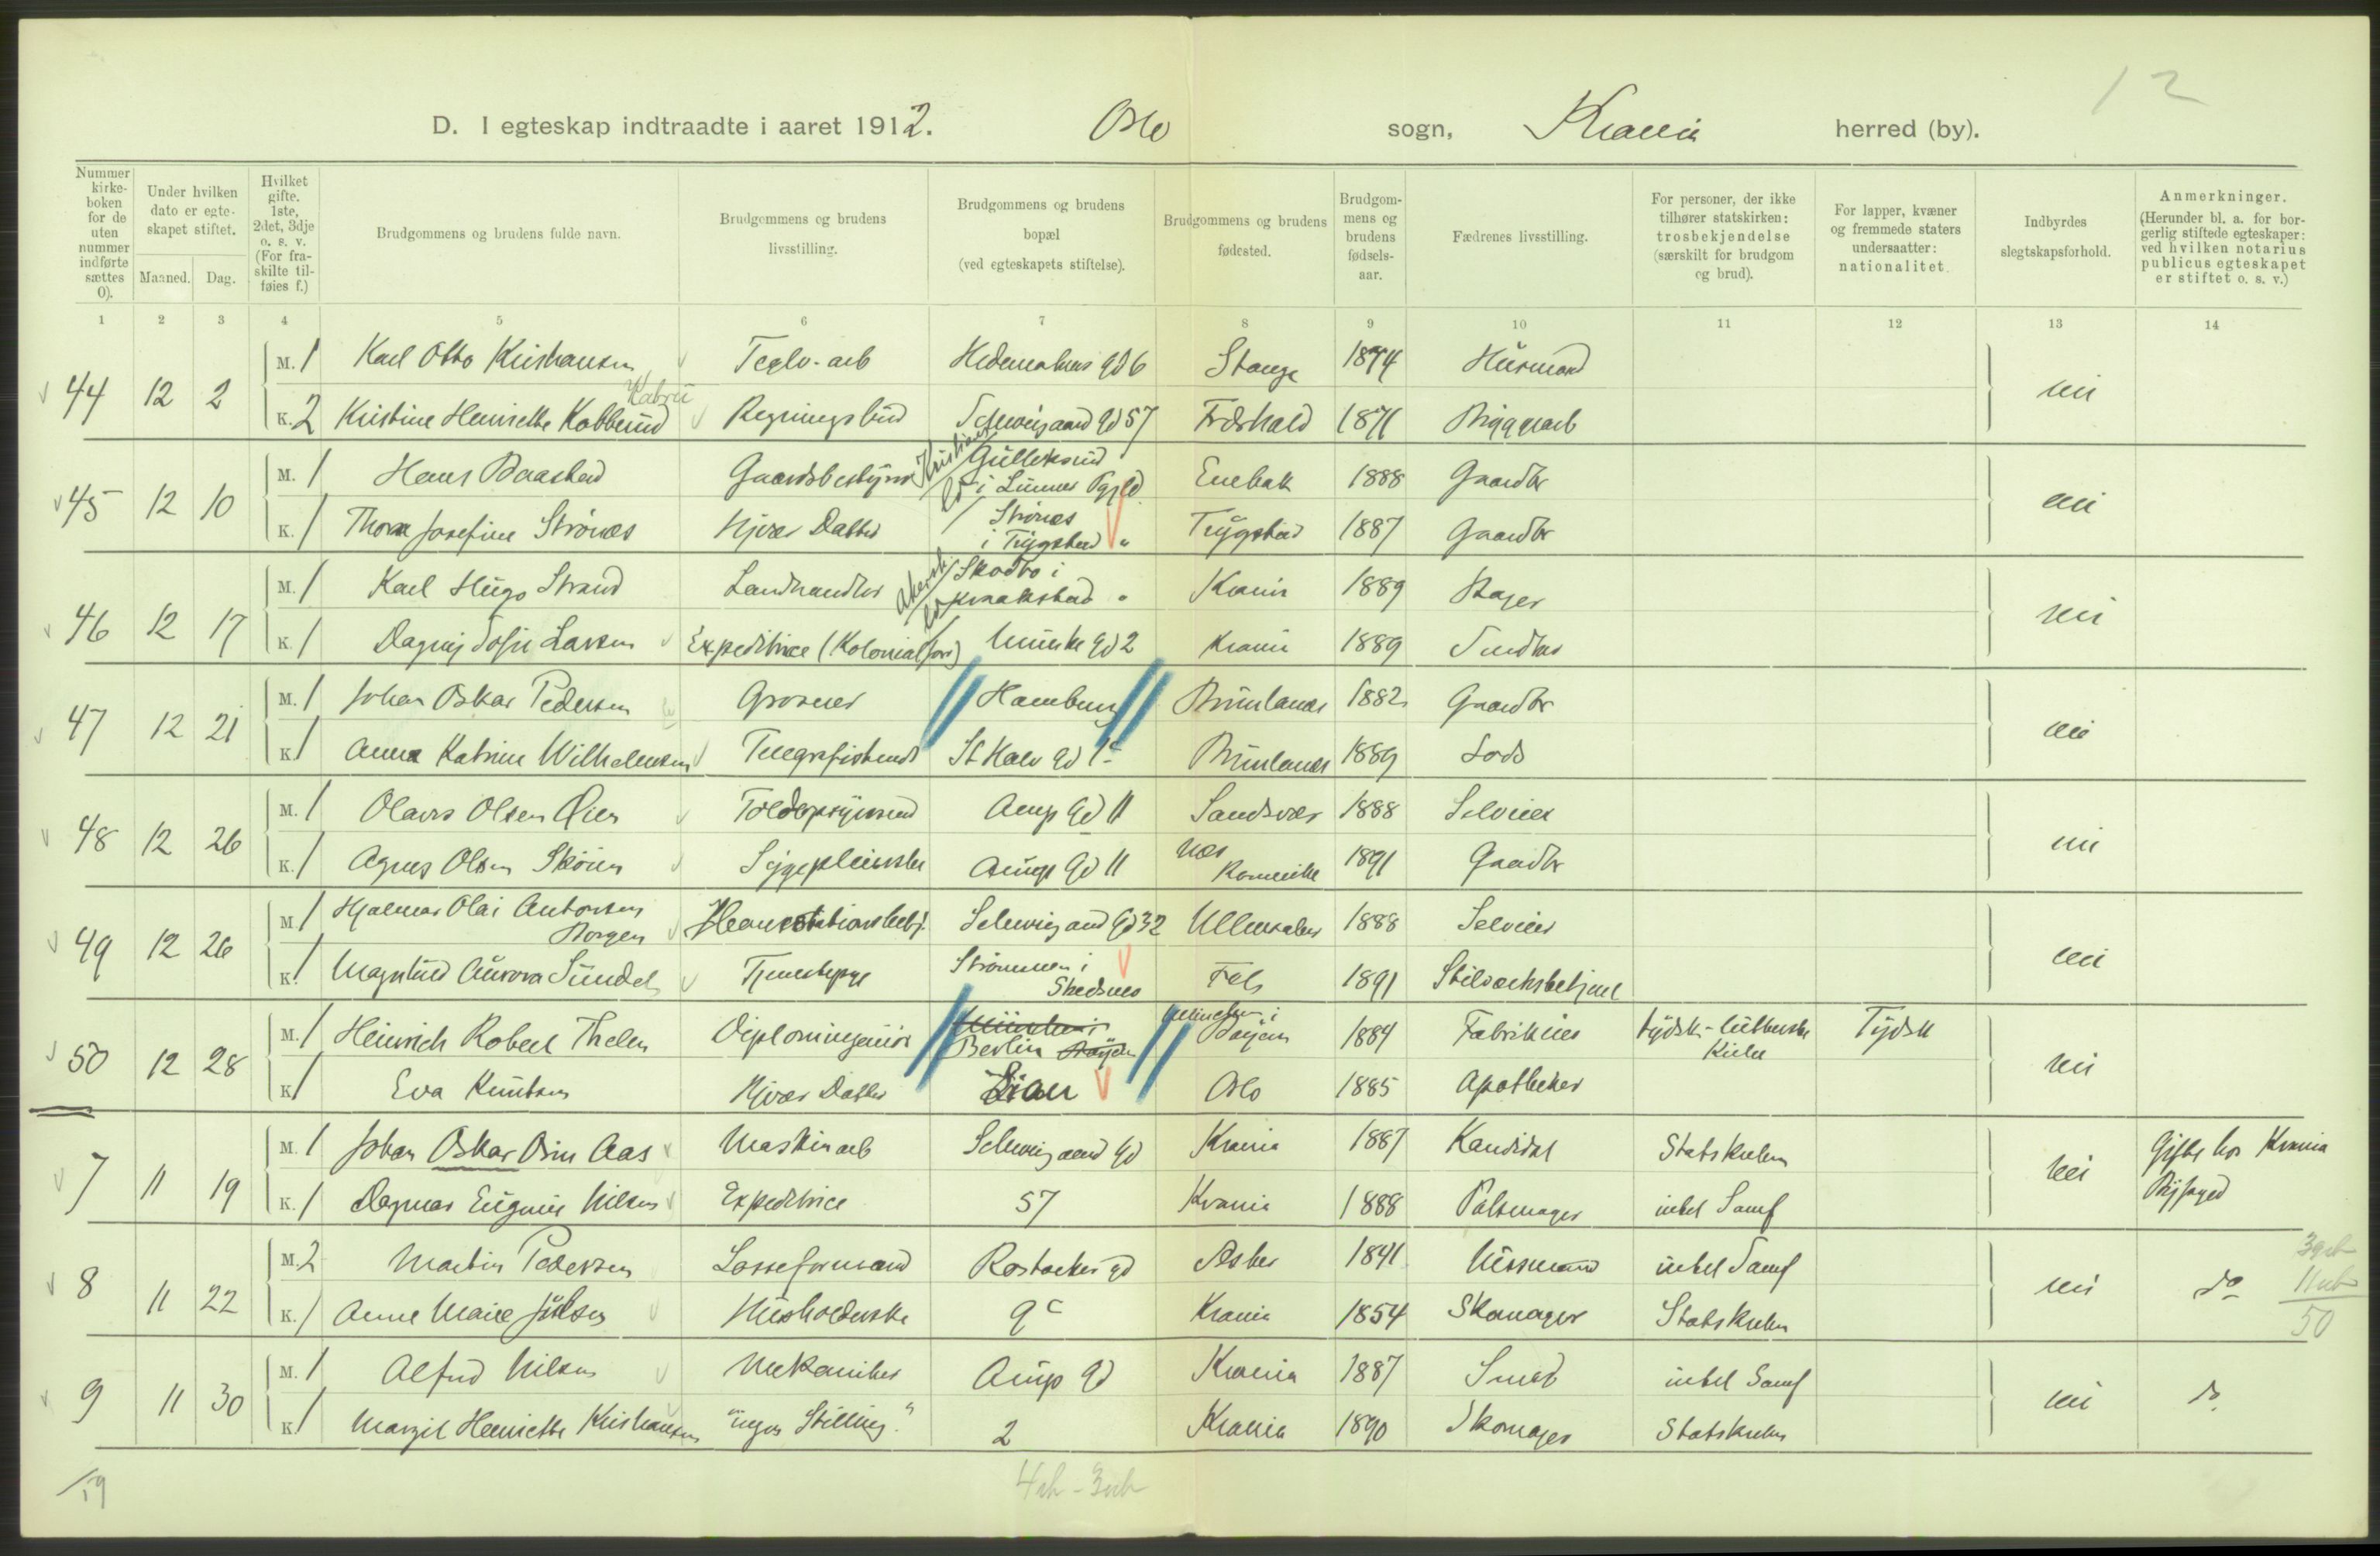 12
D. I egteskap indtraadte i aaret 1912. Oslo sogn, Krania herred (by).
Nummer kirkeboken for de uten nummer indførte sættes 0).
Under hvilken dato er egteskapet stiftet.
Maaned. Dag.
Hvilket gifte. 1ste, 2det, 3dje o. s. v. (For fraskilte tilføies f.)
Brudgommens og brudens fulde navn.
Brudgommens og brudens livsstilling.
Brudgommens og brudens bopæl (ved egteskapets stiftelse).
Brudgommens og brudens fødested.
Brudgommens og brudens fødselsaar.
Fædrenes livsstilling.
For personer, der ikke tilhører statskirken: trosbekjendelse (særskilt for brudgom og brud).
For lapper, kvæner og fremmede staters undersaatter: nationalitet.
Indbyrdes slegtskapsforhold.
Anmerkninger. (Herunder bl. a. for borgerlig stiftede egteskaper: ved hvilken notarius publicus egteskapet er stiftet o. s. v.)
1 2 3 4 5 6 7 8 9 10 11 12 13 14
44 12 2 M. 1 Karl Otto Kristiansen Teglv-arb Hedemarkens Gd 6 Stange 1874 Husmand nei
K. 2 Kristine Henriette Schweigaard Gd 57 Fredrhald 1871 Bryggearb
45 12 10 M. 1 Hans Baastad Gaardsbestyrer i Lunner Pgjld Enebak 1888 Gaardbr nei
K. 1 Thora Josefine Strønes Hjvær Datter Strønes i Trygstad " Trygstad 1887 Gaardbr
46 12 17 M. 1 Karl Hugo Strand Landhandler Skodbo i Kraakstad " Krania 1889 Bager nei
K. 1 Dagny Sofie Larsen Expeditrice (Kolonialforr) Munke Gd 2 Krania 1889 Snedker
47 12 21 M. 1 Johan Oskar Pedersen Grosser Hamburg Brunlanes 1882 Gaardbr nei
K. 1 Anna Katrine Wilhelmsen Telegrafistinde St Halv Gd 1c Brunlanes 1889 Lods
48 12 26 M. 1 Olaus Olsen Øien Toldopsynsmd Amp Gd 11 Sandsvær 1888 Selveier nei
K. 1 Agnes Olsen Skøien Sygepleierske Amp Gd 11 Nes Romerike 1891 Gaardbr
49 12 26 M. 1 Hjalmar Olai Antonsen Borgen Schweigaard Gd 32 Ullensaker 1888 Selveier nei
K. 1 Magnhild Aurora Sundel Tjenestepige Strømmen i Skedsmo Fets 1891
50 12 28 M. 1 Heinrich Robert Thelen Diplomingeniør Berlin München i Bayern 1884 Fabrikeier tydsk-lutherske Kirke Tydsk nei
K. 1 Eva Knutsen Hjvær Datter Lian Oslo 1885 Apotheker
7 11 19 M. 1 Johan Oskar Brun Aas Maskinarb Schweigaard Gd Krania 1887 Kandidat Statskirken nei Gifte hos Krania Byfoged
K. 1 Dagmar Eugenie Nilsen Expeditrice 57 Krania 1888 Pølsemager intet Samf
8 11 22 M. 2 Martin Pedersen Losseformand Rostocker gd Asker 1841 Husmand intet Samf nei do
K. 1 Anne Marie Juelsen Husholderske 9c Krania 1854 Skomager Statskirken
50
9 11 30 M. 1 Alfred Nilsen Mekaniker Amp Gd Krania 1887 Smed intet Samf nei do
K. 1 Margit Henriette Kristiansen "ingen Stilling" 2 Krania 1890 Skomager Statskirken